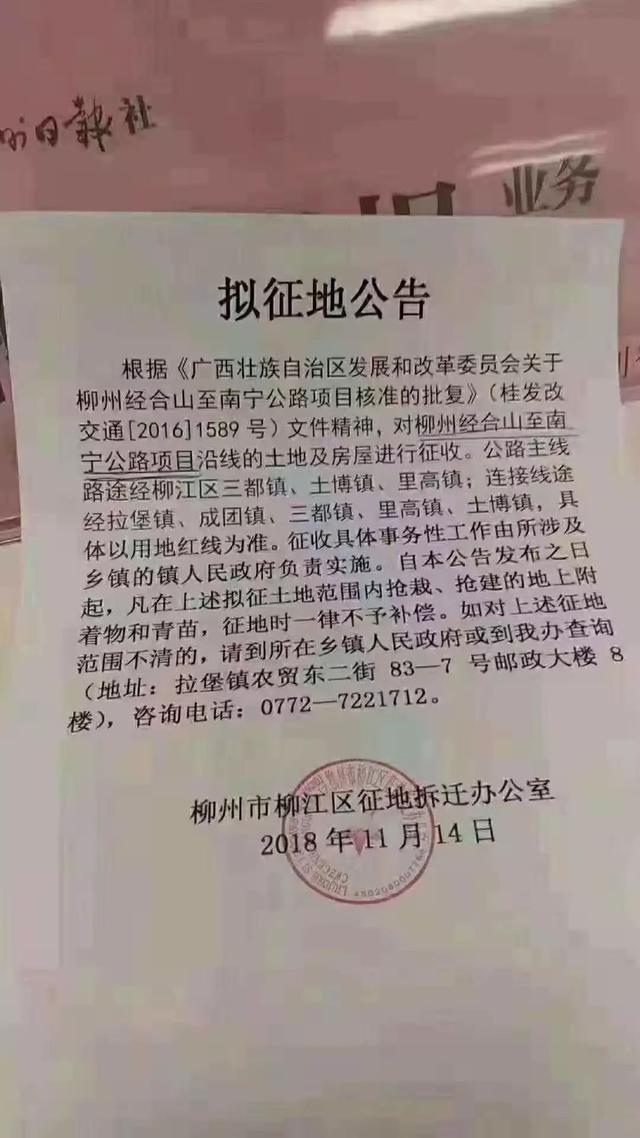 日报社
业务
拟征地公告
根据《广西壮族自治区发展和改革委员会关于
柳州经合山至南宁公路项目核准的批复》（桂发改
交通[2016]1589 号）文件精神，对柳州经合山至南
宁公路项目沿线的土地及房屋进行征收。公路主线
路途经柳江区三都镇、土博镇、里高镇；连接线途
经拉堡镇、成团镇、三都镇、里高镇、土博镇，具
体以用地红线为准。征收具体事务性工作由所涉及
乡镇的镇人民政府负责实施。自本公告发布之日
起，凡在上述拟征土地范围内抢栽、抢建的地上附
着物和青苗，征地时一律不予补偿。如对上述征地
范围不清的，请到所在乡镇人民政府或到我办查询
（地址：拉堡镇农贸东二街 83—7 号邮政大楼 8
楼），咨询电话：0772—7221712。
柳州市柳江区征地拆迁办公室
2018 年 11 月 14 日